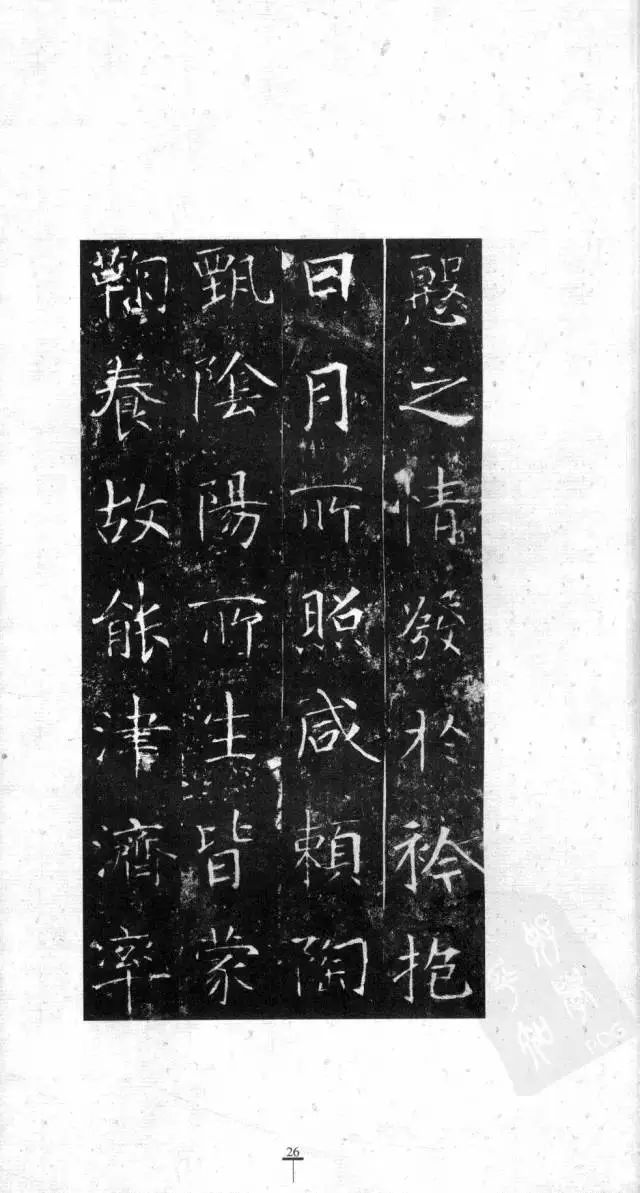 慇之情發於衿抱
日月所照咸頼陶
甄陰陽所生皆蒙
鞠養故能津濟率
26